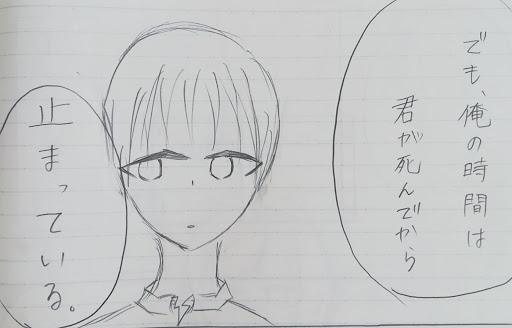 でも、俺の時間は
君が死んでから
止まっている。